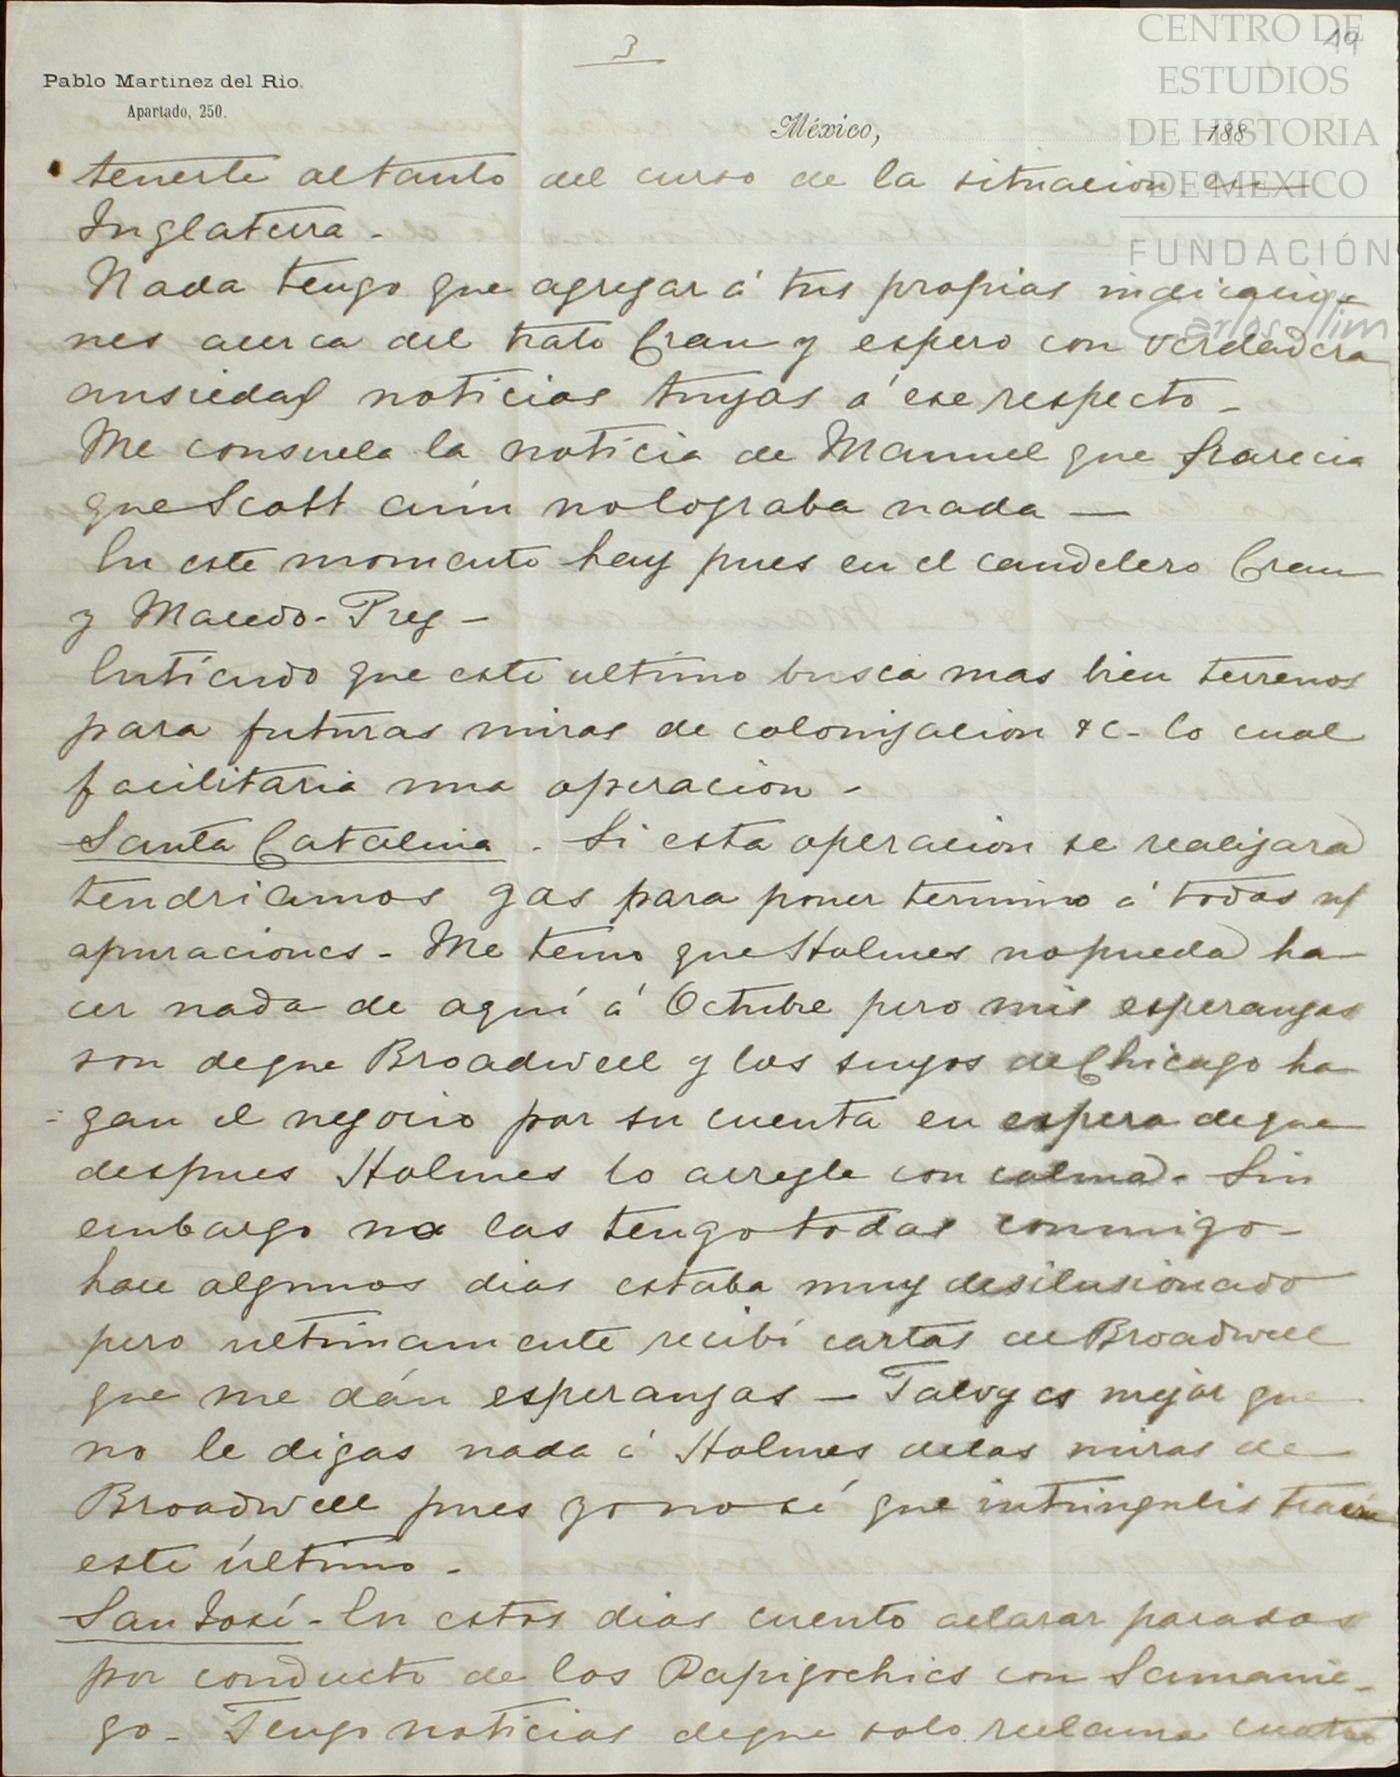 3
49
CENTRO DE
ESTUDIOS
DE HISTORIA
DE MEXICO
FUNDACIÓN
Carlos Slim
Pablo Martinez del Rio.
Apartado, 250.
México, 188
tenerte al tanto del curso de la situacion en
Inglaterra -
Nada tengo que agregar á tus propias indicacio-
nes acerca del trato Crean y espero con verdadera
ansiedad noticias tuyas á ese respecto -
Me consuela la noticia de Manuel que parecia
que Scott aún no lograba nada —
En este momento hay pues en el candelero Crean
y Macedo - Prey -
Entiendo que este ultimo busca mas bien terrenos
para futuras miras de colonizacion &c - lo cual
facilitaria una operacion -
Santa Catalina . Si esta operacion se realizara
tendriamos gas para poner termino á todas
apuraciones - Me temo que Holmes no pueda ha-
cer nada de aquí á Octubre pero mis esperanzas
son de que Broadwell y los suyos de Chicago ha-
gan el negocio por su cuenta en espera de que
despues Holmes lo arregle con calma - Sin
embargo no las tengo todas conmigo -
hace algunos dias estaba muy desilusionado
pero ultimamente recibí cartas de Broadwell
que me dán esperanzas — Talvez es mejor que
no le digas nada á Holmes de las miras de
Broadwell pues yo no sé que intringulis
este último -
San José - En estos dias cuento aclarar paradas
por conducto de los Papigochics con Samanie-
go - Tengo noticias de que solo reclama cuatro